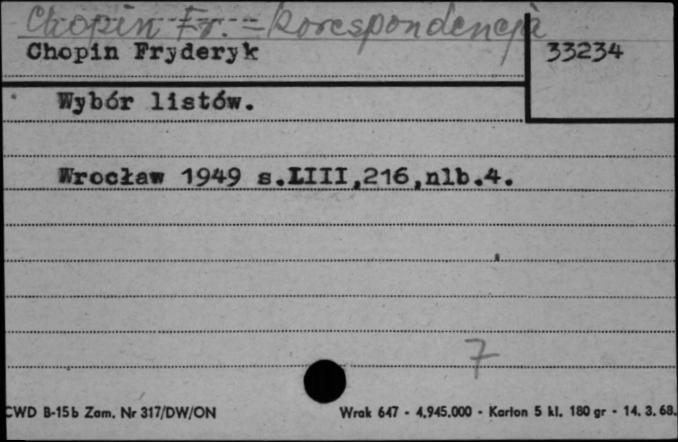 Chopin Fr. = korespondencja
Chopin Fryderyk
33234
Wybór listów.
Wrocław 1949 s.LIII,216,nlb.4.
7
CWD B-15b Zam. Nr 317/DW/ON
Wrak 647 - 4.945.000 - Karton 5 kl. 180 gr - 14. 3. 68.